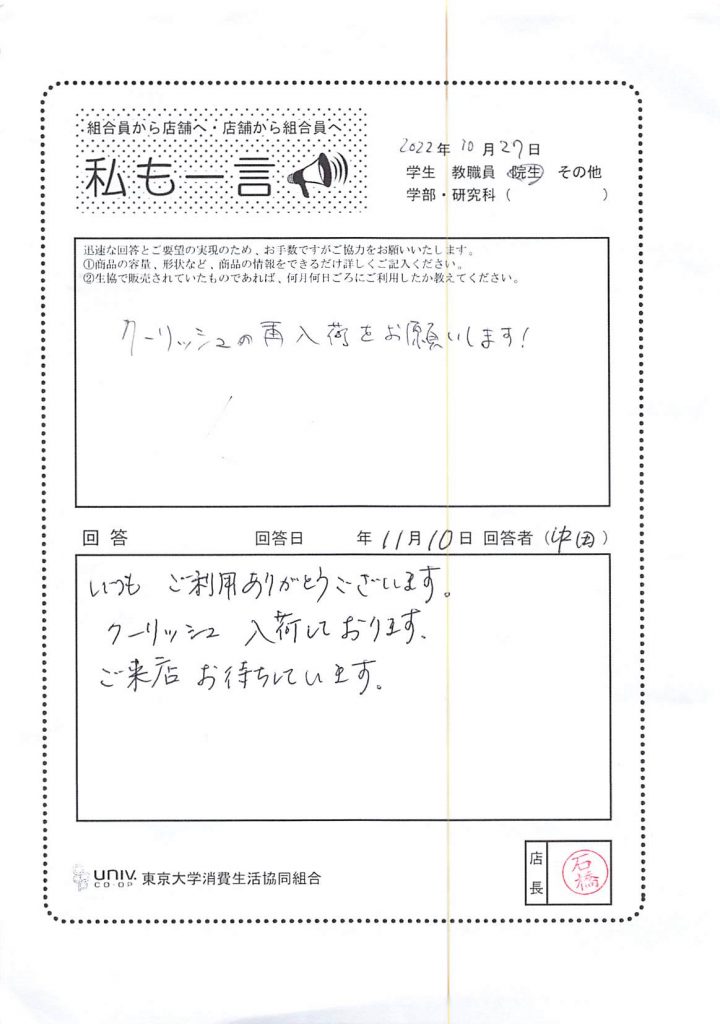 組合員から店舗へ・店舗から組合員へ
私も一言
2022年10月27日
学生 教職員 院生 その他
学部・研究科（ ）
迅速な回答とご要望の実現のため、お手数ですがご協力をお願いいたします。
①商品の容量、形状など、商品の情報をできるだけ詳しくご記入ください。
②生協で販売されていたものであれば、何月何日ごろにご利用したか教えてください。
クーリッシュの再入荷をお願いします！
回答 回答日 年11月10日 回答者（中田）
いつも ご利用ありがとうございます。
クーリッシュ 入荷しております。
ご来店 お待ちしています。
UNIV. CO-OP 東京大学消費生活協同組合
店長 石橋